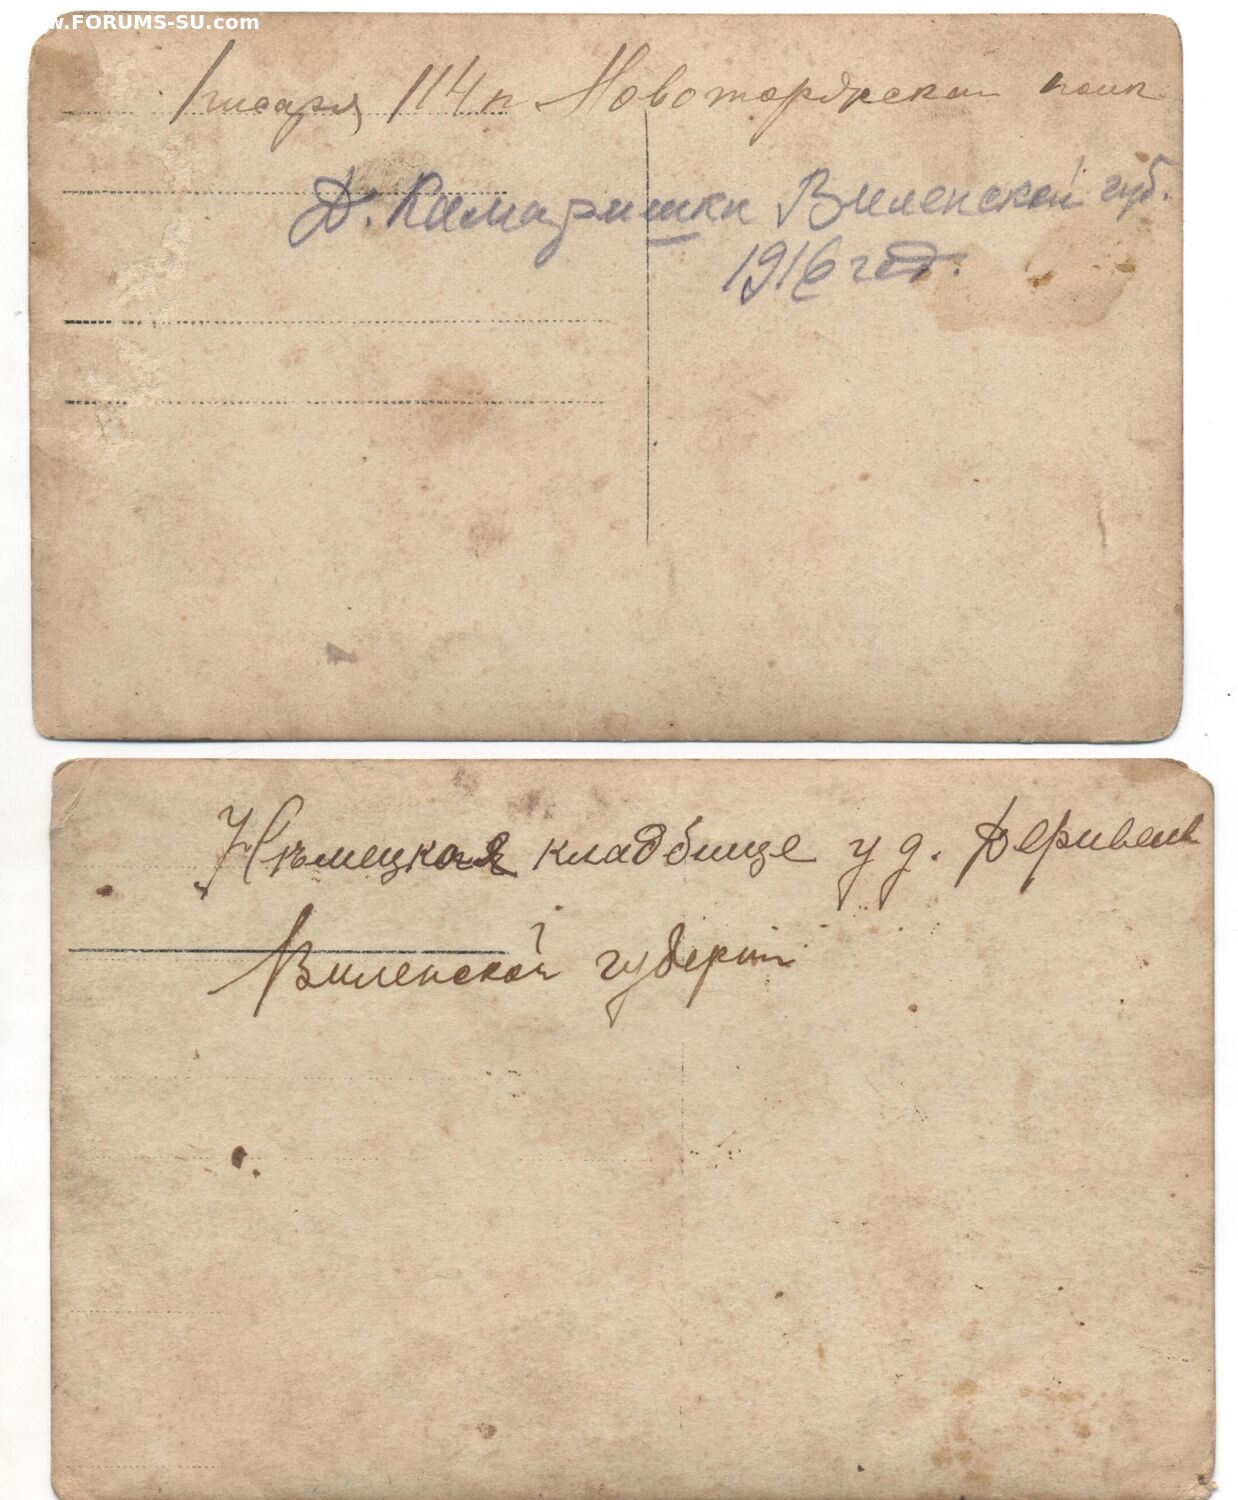 w.FORUMS-SU.com
114 п Новоторжской полк
Д. Камаришки Виленской губ.
1916 год.
Нѣмецкая кладбище у д.
Виленской губерни